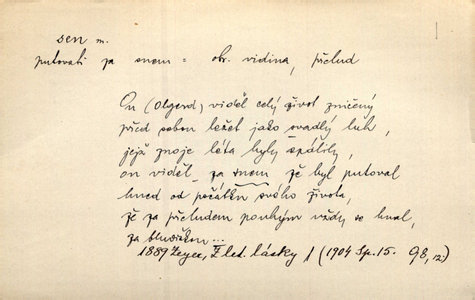 sen m.
putovati za snem = obr. vidina, přelud
On (Olgerd) viděl celý život zničený
před sebou ležet jako svadlý luh,
jejž znoje léta byly spálily,
on viděl, za snem že byl putoval
hned od počátku svého života,
že za přeludem pouhým vždy se hnal,
za bludičkou ...
1889 Zeyer, Z let. lásky I (1904 Sp. 15. 98, 12.)